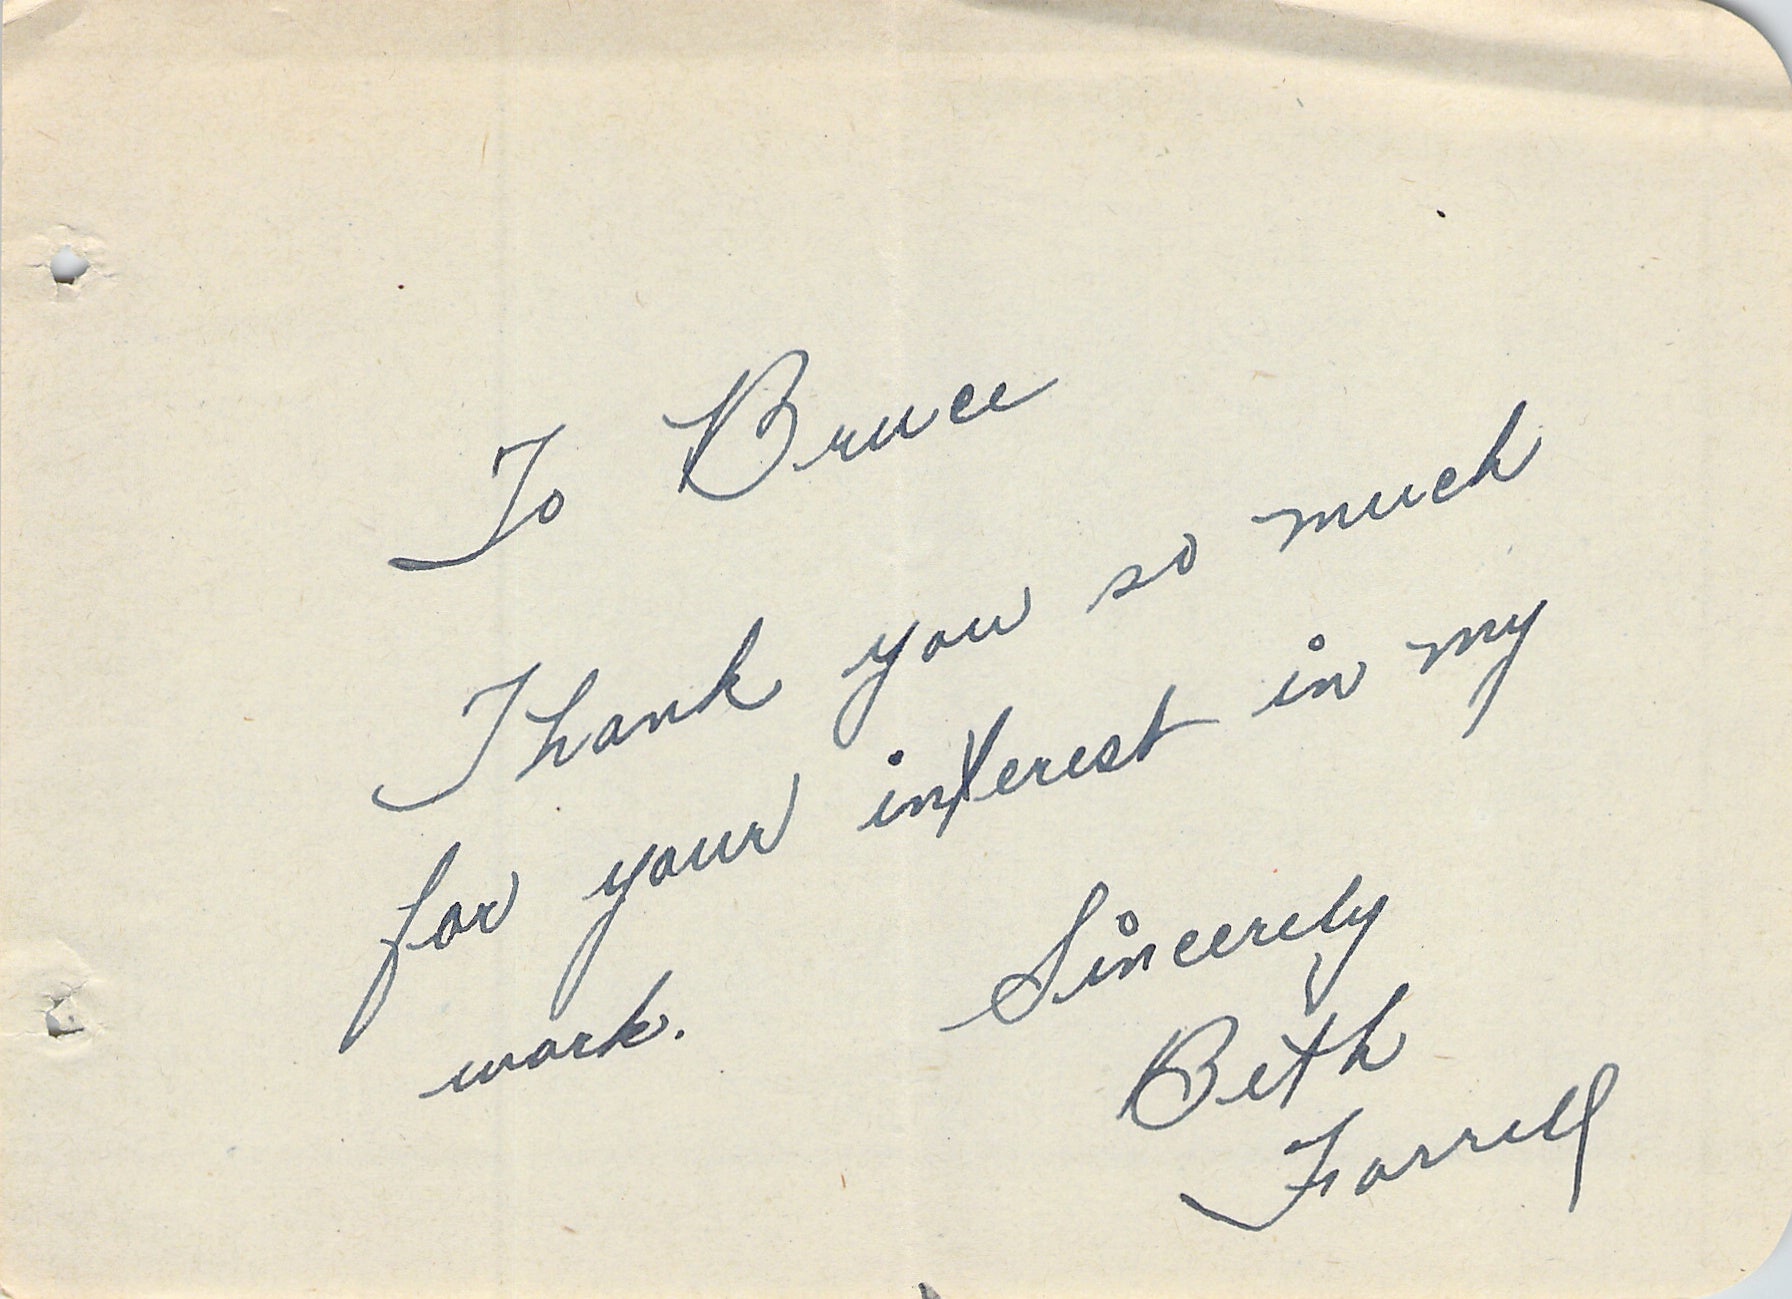 To Bruce
Thank you so much
for your interest in my
work.
Sincerely
Beth
Farrell